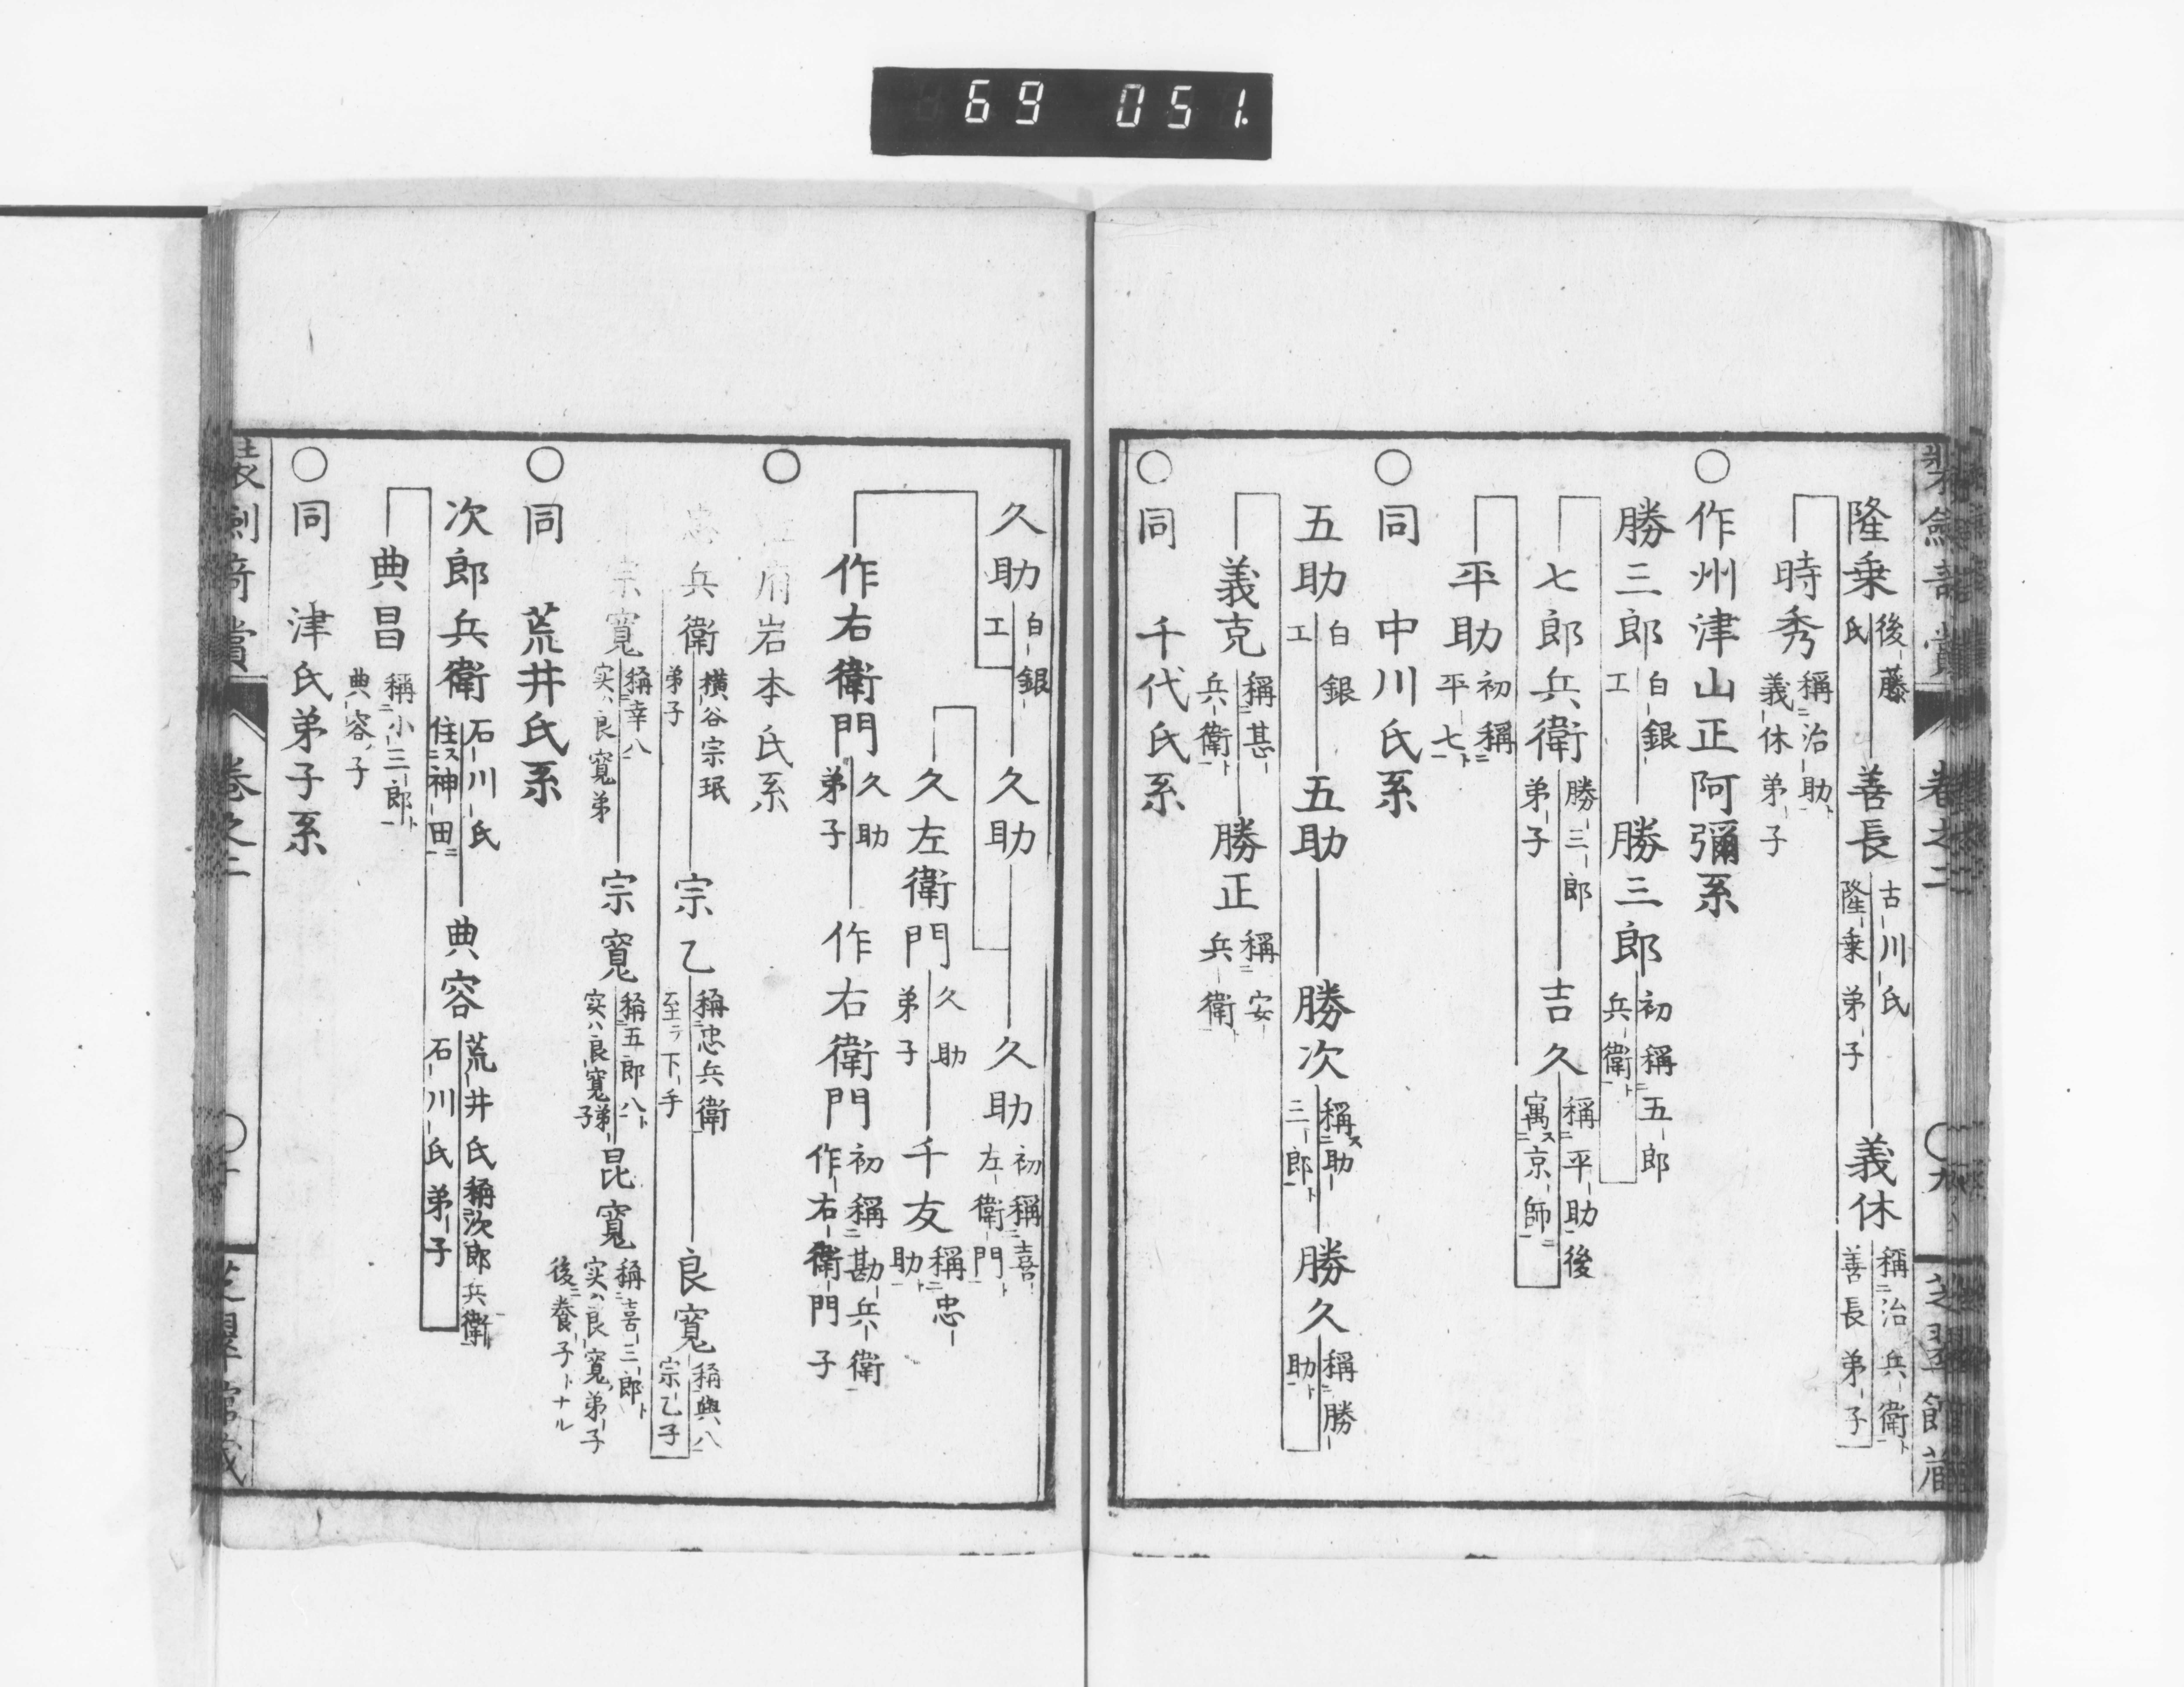 69 051.
隆乗 後藤氏 善長 古川氏隆乗弟子 義休 稱ニ治兵衛ト善長弟子
時秀 稱ニ治助ト義休弟子
○作州津山正阿彌系
勝三郎 白銀工 勝三郎 初稱ニ五郎兵衛ト
七郎兵衛 勝三郎弟子 吉久 稱ニ平助後寓ス京師ニ
平助 初稱ニ平七ト
○同 中川氏系
五助 白銀工 五助 勝次 稱ス助三郎ト 勝久 稱ニ勝助ト
義克 稱ニ甚兵衛ト 勝正 稱ニ安兵衛ト
○同 千代氏系
卷之二
久助 白銀工 久助 久助 初稱ニ喜左衛門ト
久左衛門 久助弟子 千友 稱ニ忠助ト
作右衛門 久助弟子 作右衛門 初稱ニ勘兵衛作右衛門子
○ 府岩本氏系
忠兵衛 横谷宗珉弟子 宗乙 稱忠兵衛至テ下手 良寛 稱與八宗乙子
宗寛 稱ニ幸八实ハ良寛弟 宗寛 稱ニ五郎八ト实ハ良寛弟子 昆寛 稱ニ喜三郎ト实ハ良寛弟子後ニ養子トナル
○同 荒井氏系
次郎兵衛 石川氏住ス神田ニ 典容 荒井氏稱次郎兵衛ト石川氏弟子
典昌 稱ニ小三郎ト典容ノ子
○同 津氏弟子系
卷之二